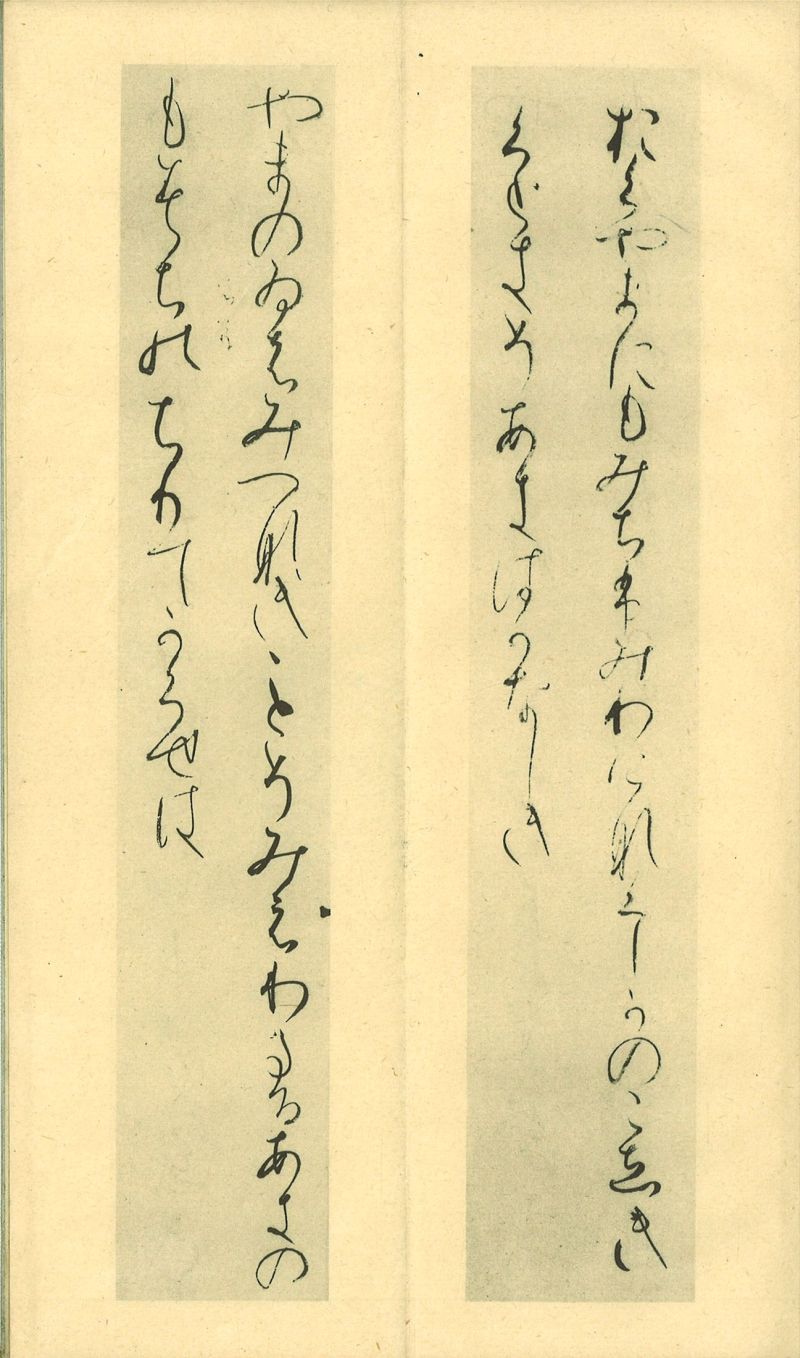 おくやまにもみちふみわけなくしかのこゑき
くときそあきはかなしき
やまのゐはみつなきことそみえわたるあきの
もみちのちりてかくせは